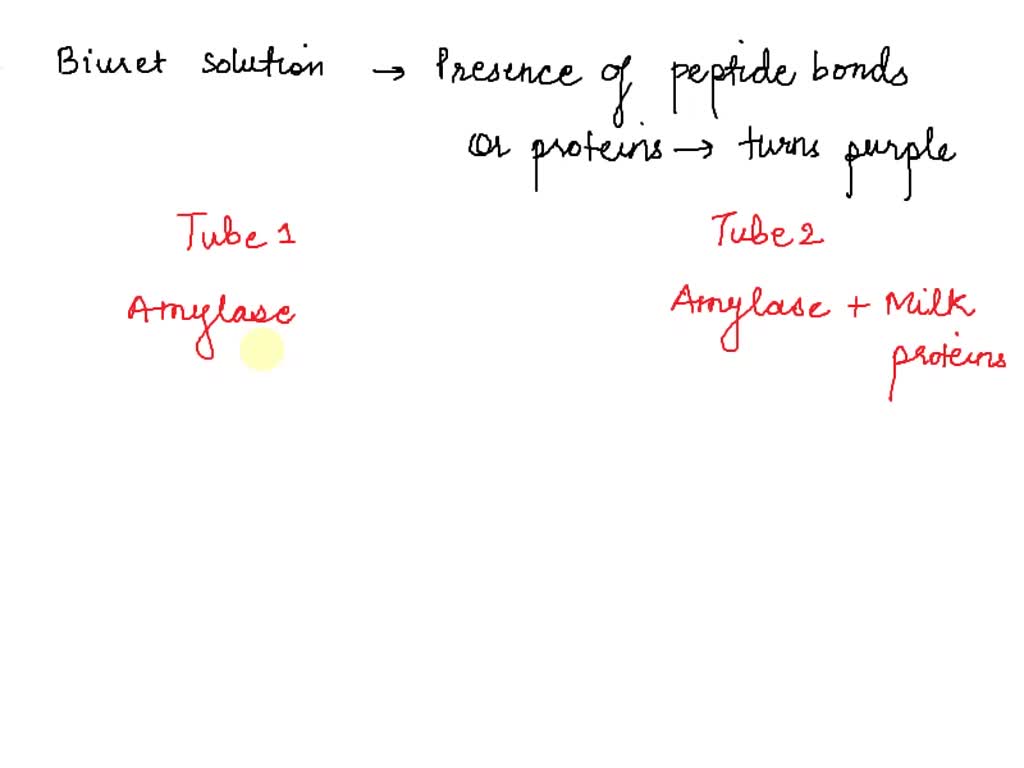 Biuret solution → Presence of peptide bonds
or proteins → turns purple
Tube 1 Tube 2
Amylase Amylase + Milk
proteins